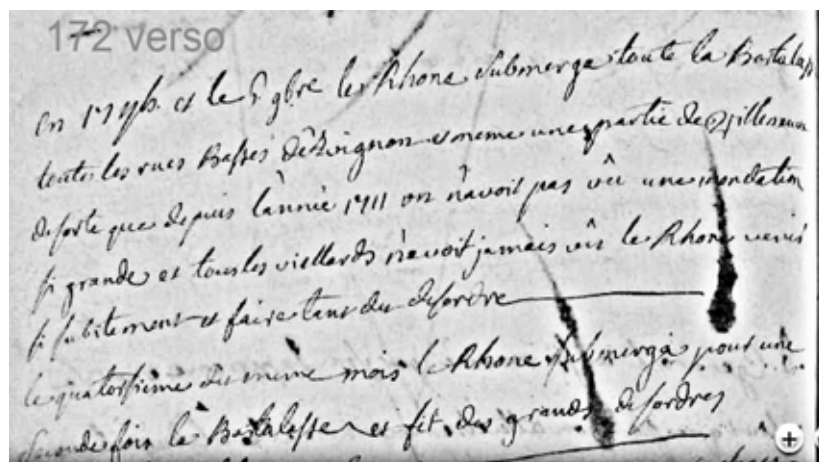 172 verso
en et le 9bre le Rhone submergea toute la Bartalasse
toutes les rues Basses d'Avignon et meme une partie de Villeneuve
de sorte que depuis l'année 1711 on n'avoit pas vû une inondation
si grande et tous les viellards n'avoit jamais vûs le Rhone venir
si subitement et faire tant du desordre
le quatorsieme du meme mois le Rhone submerga pour une
seconde fois la Bartalasse et fit des grands desordres